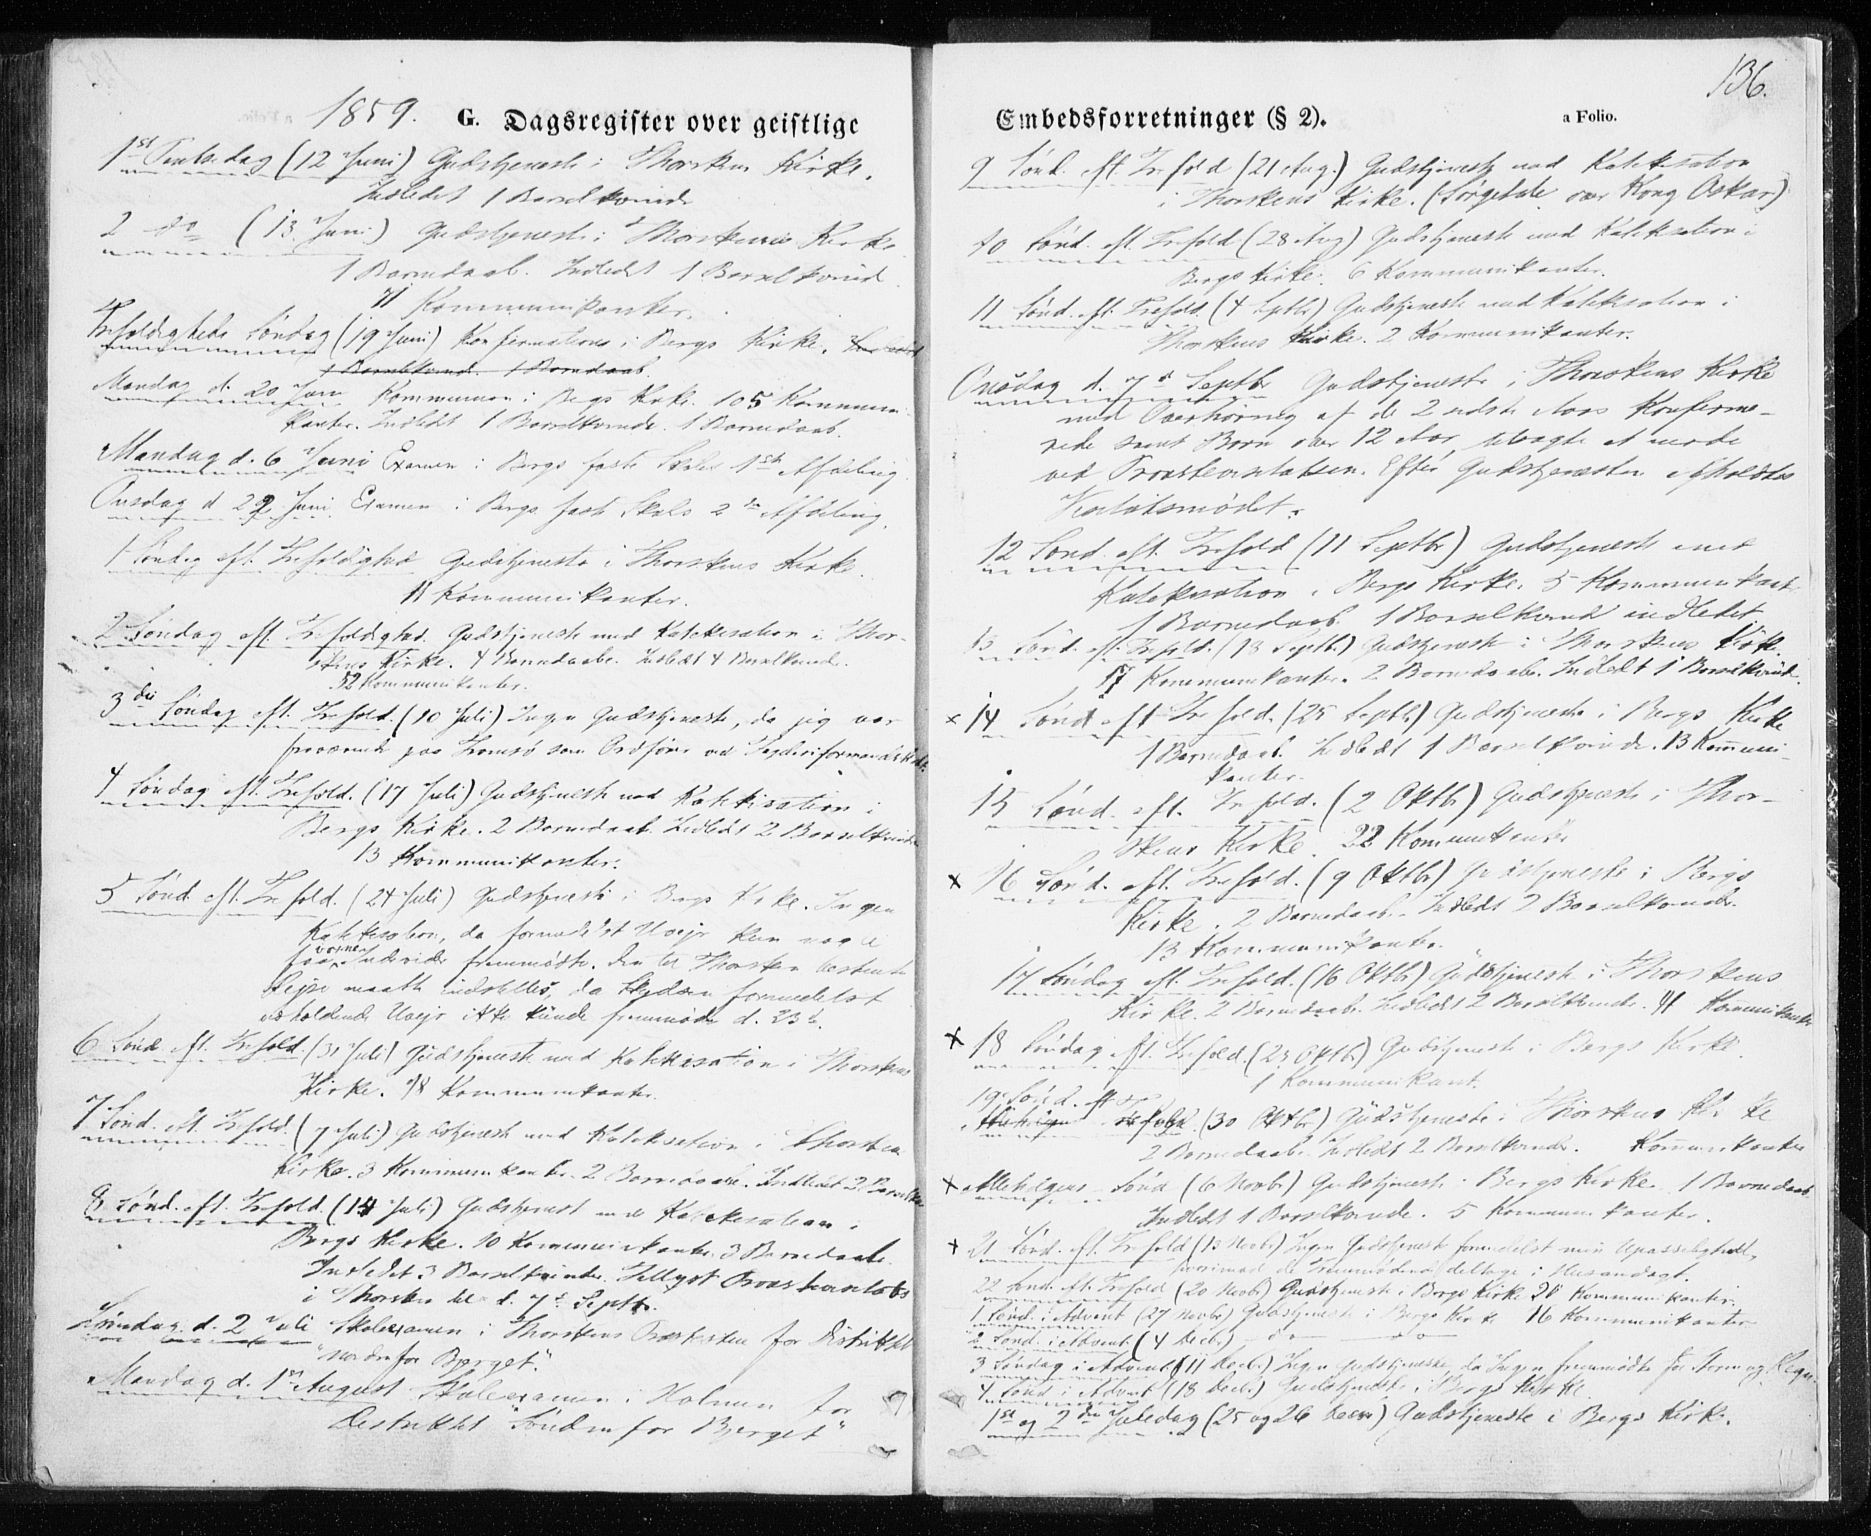 1859. G. Dagsregister over geistlige
1st Pintsedag (12 Juni) Gudstjeneste i Thorskens Kirke.
Indledet 1 Barselkvinde
2 do (13 Juni) Gudstjeneste i Thorskens Kirke
1 Barnedaab. Indledet 1 Barselkvind.
71 Kommunikanter.
Trefoldigheds Søndag (19 Juni) Konfirmation i Bergs Kirke.
1 Barselkvind. 1 Barnedaab.
Mandag d. 20 Juni Kommunion i Bergs Kirke. 105 Kommuni-
kanter. Indledt 1 Barselkvinde. 1 Barnedaab.
Mandag d. 6 Juni Examen i Bergs faste Skoles 1ste Afdeling
Onsdag d 22 Juni Examen i Bergs faste Skoles 2den Afdeling.
1 Søndag eft. Trefoldighed Gudstjeneste i Thorskens Kirke.
11 Kommunikanter.
2 Søndag eft. Trefoldighed. Gudstjeneste med Katekisation i Thor-
skens Kirke. 4 Barnedaabe. Indledt 4 Barselkvinde.
52 Kommunikanter.
3die Søndag eft. Trefold. (10 Juli) Ingen Gudstjeneste, da jeg var
fraværende paa Tromsø som Ordfører ved
4 Søndag eft. Trefold. (17 Juli) Gudstjeneste med Katekisation i
Bergs Kirke. 2 Barnedaab. Indledt 2 Barselkvinder
13 Kommunikanter.
5 Sønd. eft. Trefold. (24 Juli) Gudstjeneste i Bergs Kirke. Ingen
Katekisation, da formedelst Uvejr kun
faa voxne Individer fremmødte. Den til Thorsken bestemte
Rejse maatte indstilles, da Skydsen formedelst
vedholdende Uvejr ikke kunde fremmøde d. 23de.
6 Sønd eft. Trefold. (31 Juli) Gudstjeneste med Katekisation i Thorskens
Kirke. 78 Kommunikanter.
7 Sønd. eft. Trefold. (7 Juli) Gudstjeneste med Katekisation i Thorskens
Kirke. 3 Kommunikanter. 2 Barnedaabe. Indledet 2 Barselkv.
8 Sønd. eft. Trefold. (14 Juli) Gudstjenest med Katekisation i
Bergs Kirke. 10 Kommunikanter. 3 Barnedaabe.
Indledet 3 Barselkvinder. Tillyst Provstevisitats
i Thorsken til d. 7de Septbr.
Søndag d. 2 Juli Skoleexamen i Thorskens for Distriktet
"nordenfor Bjerget".
Mandag d. 1ste August Skoleexamen i Holmen for
Distriktet "Søndenfor Bjerget"
136.
Embedsforretninger (§ 2). a Folio.
9 Sønd. eft. Trefold (21 Aug.) Gudstjeneste med Katekisation
i Thorskens Kirke. (Sørgetale over Kong Oskar)
10 Sønd. eft. Trefold (28 Aug) Gudstjeneste med Katekisation i
Bergs Kirke. 6 Kommunikanter.
11 Sønd. eft. Trefold. (4 Septbr) Gudstjeneste med Katekisation i
Thorskens Kirke. 2 Kommunikanter.
Onsdag d. 7de Septbr Gudstjeneste i Thorskens Kirke
med Overhøring af de 2 sidste Aars Konfirme-
rede samt Børn over 12 Aar, tilsagte at møde
ved Provstevisitatsen. Efter Gudstjenesten afholdtes
Visitatsmødet.
12 Sønd. eft. Trefold (11 Septbr) Gudstjeneste med
Katekisation i Bergs Kirke. 5 Kommunikant.
1 Barnedaab. 1 Barselkvind indledet
13 Sønd. eft. Trefold. (18 Septbr) Gudstjeneste i Thorskens Kirke.
17 Kommunikanter. 2 Barnedaabe. Indledt 1 Barselkvind.
x 14 Sønd. eft Trefold. (25 Septbr) Gudstjeneste i Bergs Kirke
1 Barnedaab. Indledt 1 Barselkvinde. 13 Kommuni-
kanter.
15 Sønd. eft. Trefold. (2 Oktbr) Gudstjeneste i Thor-
skens Kirke. 22 Kommunikanter
x 16 Sønd. eft. Trefold. (9 Oktbr) Gudstjeneste i Bergs
Kirke. 2 Barnedaab. Indledt 2 Barselkvinder.
13 Kommunikanter.
17 Søndag eft. Trefold. (16 Oktbr) Gudstjeneste i Thorskens
Kirke. 2 Barnedaab. Indledt 2 Barselkvinder. 41 Kommunikanter
x 18 Søndag eft. Trefold. (23 Oktbr) Gudstjeneste i Bergs Kirke.
1 Kommunikant.
19 Sønd. eft Tr
(30 Oktbr) Gudstjeneste i Thorskens Kirke
2 Barnedaab. Indledt 2 Barselkvinder. Kommunikanter
x Allehelgens Sønd (6 Novbr) Gudstjeneste i Bergs Kirke. 1 Barnedaab
Indledt 1 Barselkvinde. 5 Kommunikanter.
x 21 Sønd. eft. Trefold (13 Novbr) Ingen Gudstjeneste formedelst min Upasselighed,
hvorimod de Fremmødende deltoge i Husandagt.
22 Sønd. eft. Trefold (20 Novbr) Gudstjeneste i Bergs Kirke 20 Kommunikanter.
1 Sønd. i Advent (27 Novbr) Gudstjeneste i Bergs Kirke 16 Kommunikanter
2 Sønd. i Advent (4 Decbr) - do - do -
3 Søndag i Advent (11 Decbr) Ingen Gudstjeneste, da Ingen fremmødte for Storm og Regn.
4 Sønd i Advent (18 Decbr) Gudstjeneste i Bergs Kirke
1ste og 2den Juledag (25 og 26 Decbr) Gudstjeneste i Bergs Kirke.